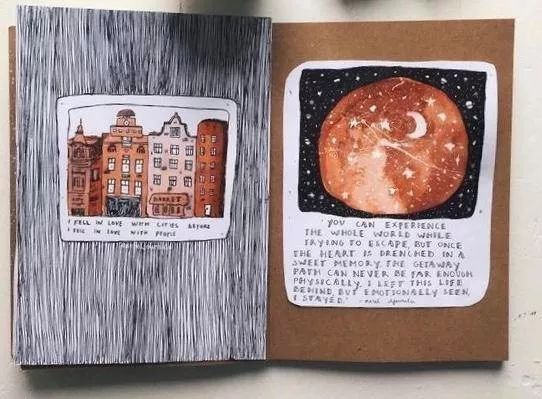 MARKET
I FELL IN LOVE WITH CITIES BEFORE
I FELL IN LOVE WITH PEOPLE
'YOU CAN EXPERIENCE
THE WHOLE WORLD WHILE
TRYING TO ESCAPE, BUT ONCE
THE HEART IS DRENCHED IN A
SWEET MEMORY, THE GETAWAY
PATH CAN NEVER BE FAR ENOUGH
PHYSICALLY, I LEFT THIS LIFE
BEHIND, BUT EMOTIONALLY SEEN,
I STAYED.'